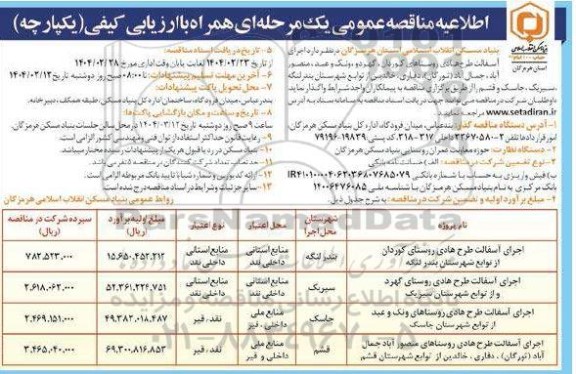 اطلاعیه مناقصه عمومی یک مرحله‌ای همراه با ارزیابی کیفی (یکپارچه)
بنیاد مسکن انقلاب اسلامی
استان هرمزگان
بنیاد مسکن انقلاب اسلامی استان هرمزگان در نظر دارد اجرای
آسفالت طرح هادی روستاهای کوردان، گهرد و ، ونک و عبد، منصور
آباد، جمال آباد (تورگان)، دفاری، خالدین از توابع شهرستان بندر لنگه
، سیریک، جاسک و قشم را از طریق برگزاری مناقصه به پیمانکاران واجد شرایط واگذار نماید
www.setadiran.ir مراجعه نمایید.
۱- آدرس دستگاه مناقصه گزار: بندرعباس، میدان فرودگاه، اداره کل بنیاد مسکن هرمزگان،
۲- دستگاه نظارت: حوزه معاونت عمران روستایی بنیاد مسکن هرمزگان
۳- نوع تضمین شرکت در مناقصه: الف) ضمانت نامه بانکی
بانک مرکزی به نام بنیاد مسکن هرمزگان با شناسه ملی ۱۴۰۰۶۴۷۶۰۸۵
۴- مبلغ برآورد اولیه و تضمین شرکت در مناقصه: به شرح جدول ذیل.
۵- تاریخ دریافت اسناد مناقصه:
از تاریخ ۱۴۰۴/۰۲/۲۳ لغایت پایان وقت اداری مورخ ۱۴۰۴/۰۲/۲۸
۶- آخرین مهلت تسلیم پیشنهادات: تا ۰۸:۰۰ صبح روز دوشنبه تاریخ ۱۴۰۴/۰۳/۱۲
۷- محل تحویل پاکت پیشنهادات:
بندرعباس، میدان فرودگاه، ساختمان اداره کل بنیاد مسکن، طبقه همکف، دبیرخانه.
۸- تاریخ و ساعت و مکان بازگشایی پاکت‌ها:
ساعت ۹ صبح روز دوشنبه تاریخ ۱۴۰۴/۰۳/۱۲ در محل سالن جلسات بنیاد مسکن هرمزگان.
۹- رعایت قانون حداکثر استفاده از توان فنی و مهندسی کشور الزامی است.
۱۰- بنیاد مسکن در رد یا قبول هر یک از پیشنهادات رسیده مختار میباشد.
۱۳- سایر جزئیات و شرایط در اسناد مناقصه درج شده است.
روابط عمومی بنیاد مسکن انقلاب اسلامی هرمزگان
نام پروژه	شهرستان محل اجرا	محل اعتبار	نوع اعتبار	مبلغ اولیه برآورد (ریال)	سپرده شرکت در مناقصه (ریال)
اجرای آسفالت طرح هادی روستای کوردان	بندر لنگه	منابع استانی	منابع استانی	۱۵.۶۵۰.۴۵۲.۳۱۲	۷۸۲.۵۲۳.۰۰۰
از توابع شهرستان بندر لنگه	داخلی نقد	داخلی نقد
اجرای آسفالت طرح هادی روستای گهرد	سیریک	منابع استانی	منابع استانی	۵۲.۳۶۱.۲۲۴.۷۵۱	۲.۶۱۸.۰۶۲.۰۰۰
و از توابع شهرستان سیریک	داخلی نقد	داخلی نقد
اجرای آسفالت طرح هادی روستاهای ونک و عبد	جاسک	منابع ملی	نقد، قیر	۴۹.۳۸۳.۰۱۸.۴۸۷	۲.۴۶۹.۱۵۱.۰۰۰
از توابع شهرستان جاسک	داخلی و قیر
اجرای آسفالت طرح هادی روستاهای منصور آباد جمال	قشم	منابع ملی	نقد، قیر	۶۹.۳۰۰.۸۱۶.۸۵۳	۳.۴۶۵.۰۴۰.۰۰۰
آباد (تورگان)، دفاری، خالدین از توابع شهرستان قشم	داخلی و قیر